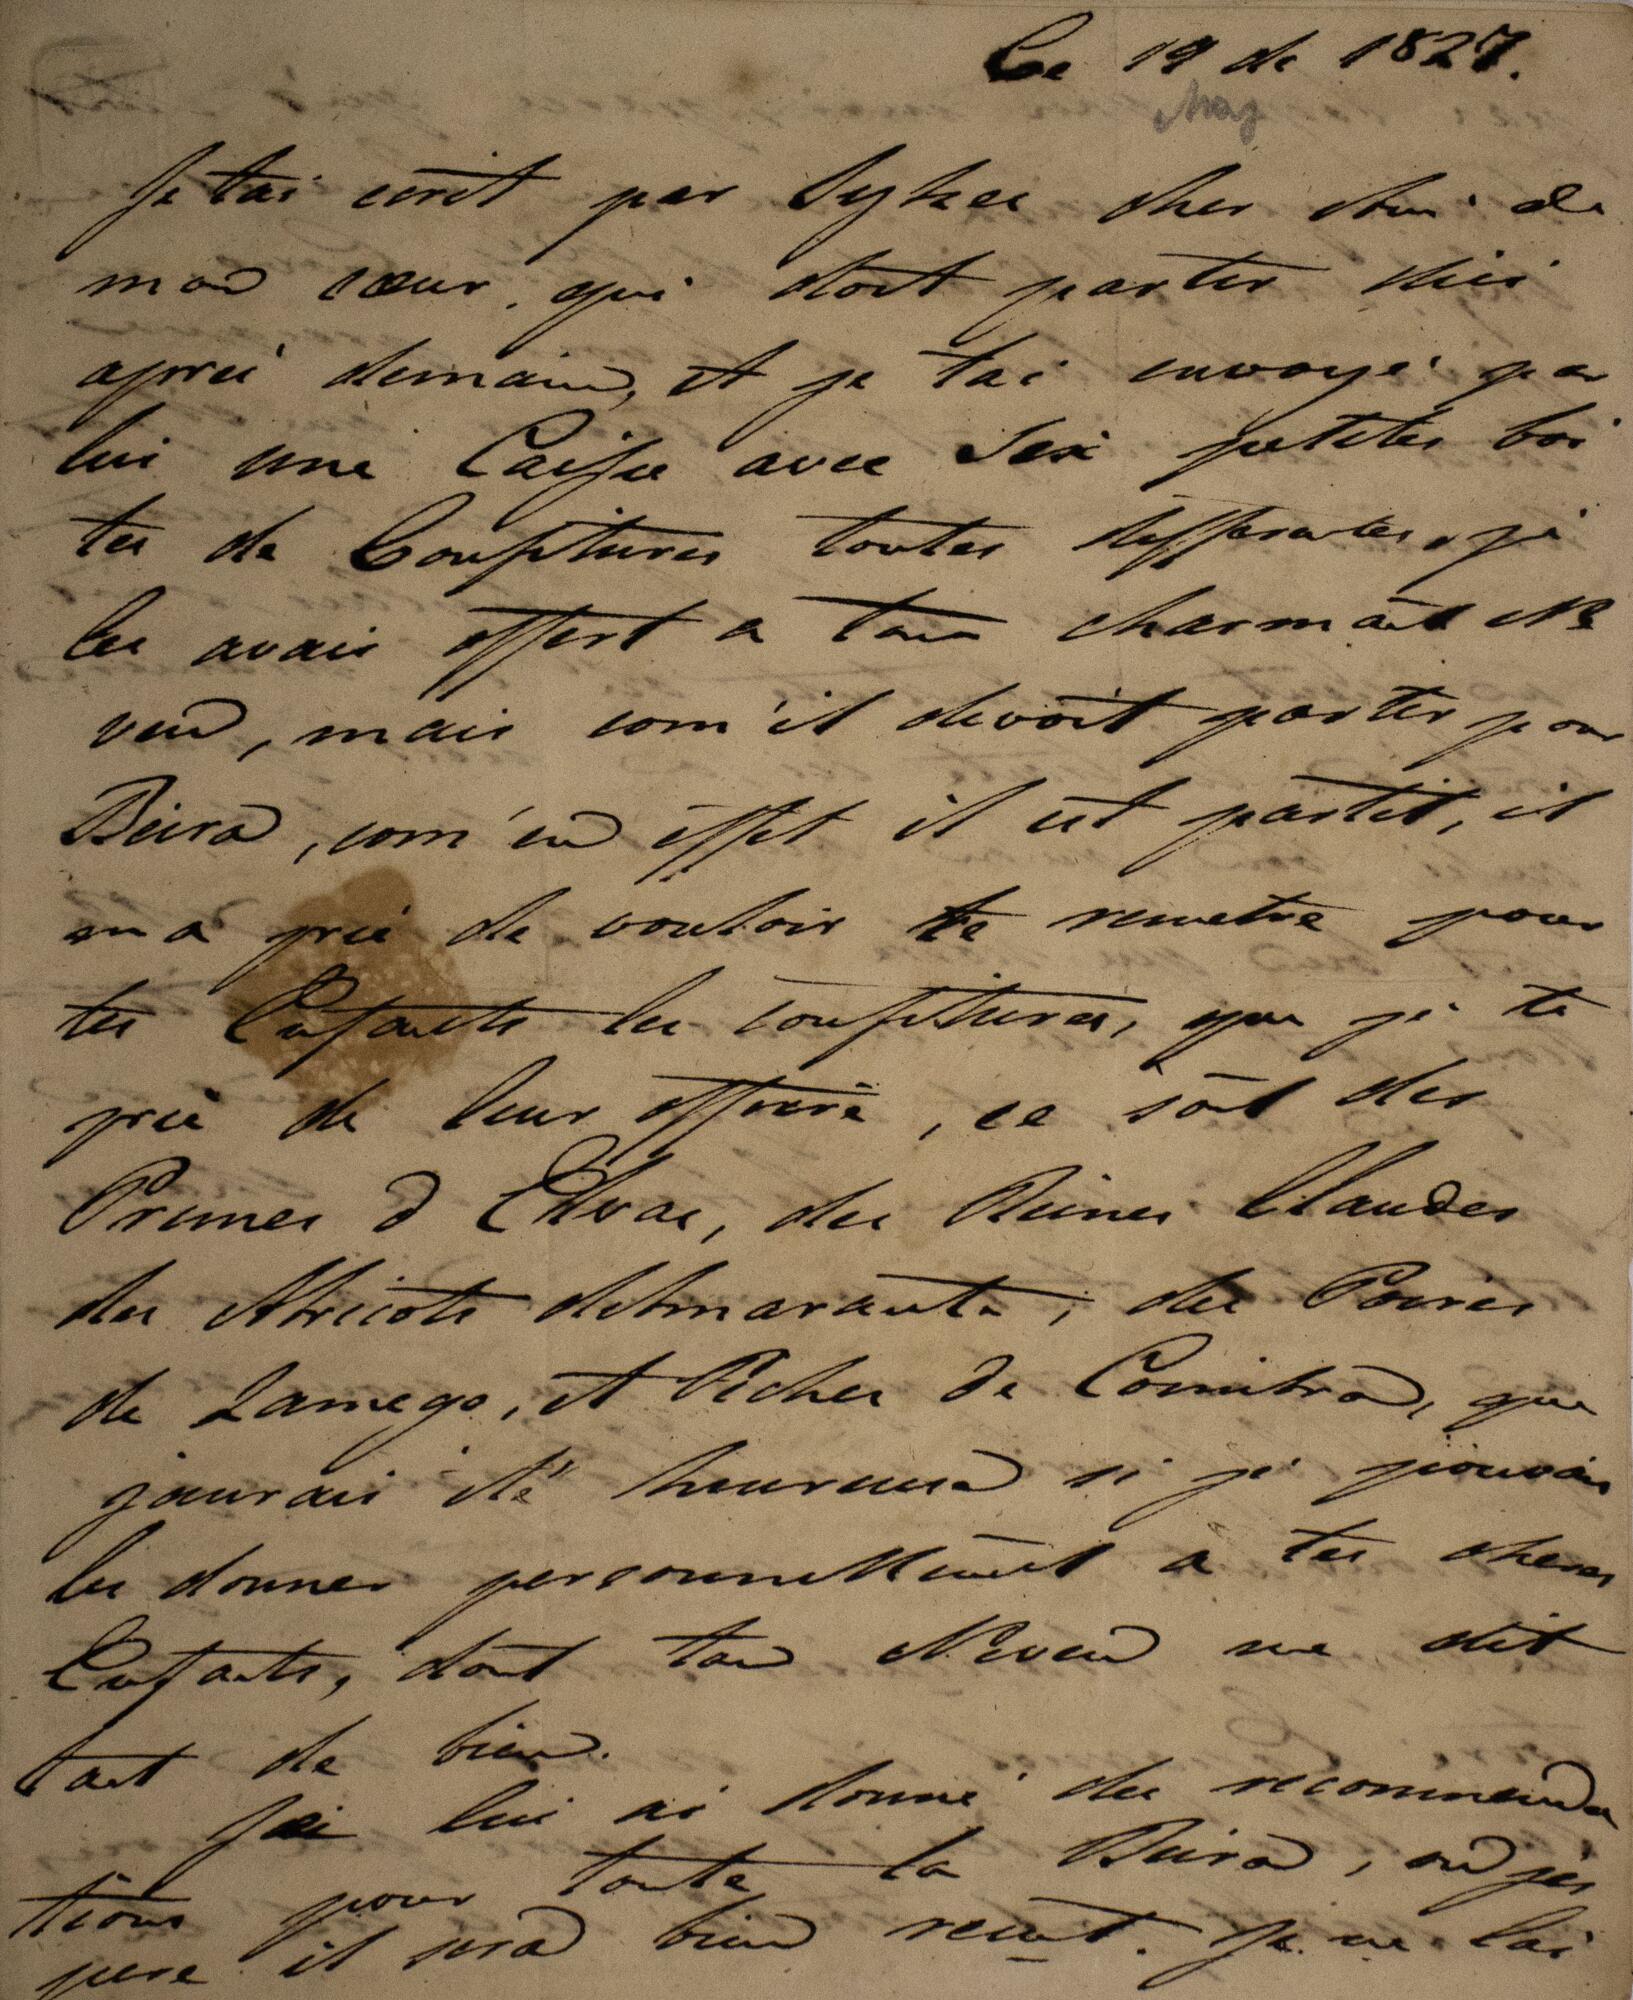 Le 19 de 1827.
May
Je tai ecrit par Sykes cher Ami de
mon cœur, qui doit partir dici
après demain, et je tai envoyé par
lui une Caisse avec Six petites boi
tes de Confitures toutes differentes, je
les avais offert a ton charmant Ne
veu, mais com'il devoit partir pour
Beira, com'en effet il est partit, il
ma prié de vouloir te remetre pour
tes Enfants les confitures, que je te
prie de leur offrire, ce sont des
Prunes d Elvas, des Reines Claudes
des Abricots dAmarante, des Poires
de Lamego, et Peches de Coimbra, que
jaurais été heureuse si je pouvais
les donner personnellement à tes cheres
Enfants, dont ton Neveu me dit
tant de bien.
Je lui ai donné des recommenda
tions pour toute la Beira, ou jes
pere il sera bien recut. Je ne lai